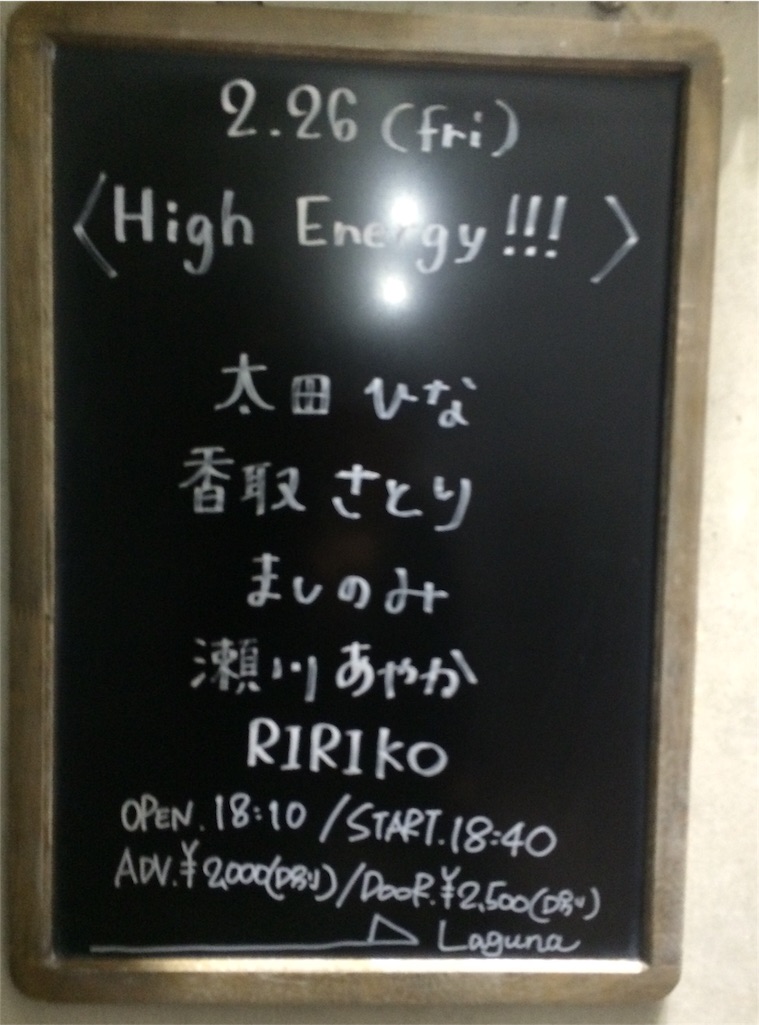 2.26 (fri)
〈High Energy!!!〉
太田 ひな
香取 さとり
ましのみ
瀬川 あやか
RIRIKO
OPEN.18:10/START.18:40
ADV.¥2,000(D別)/DOOR.¥2,500(D別)
Laguna